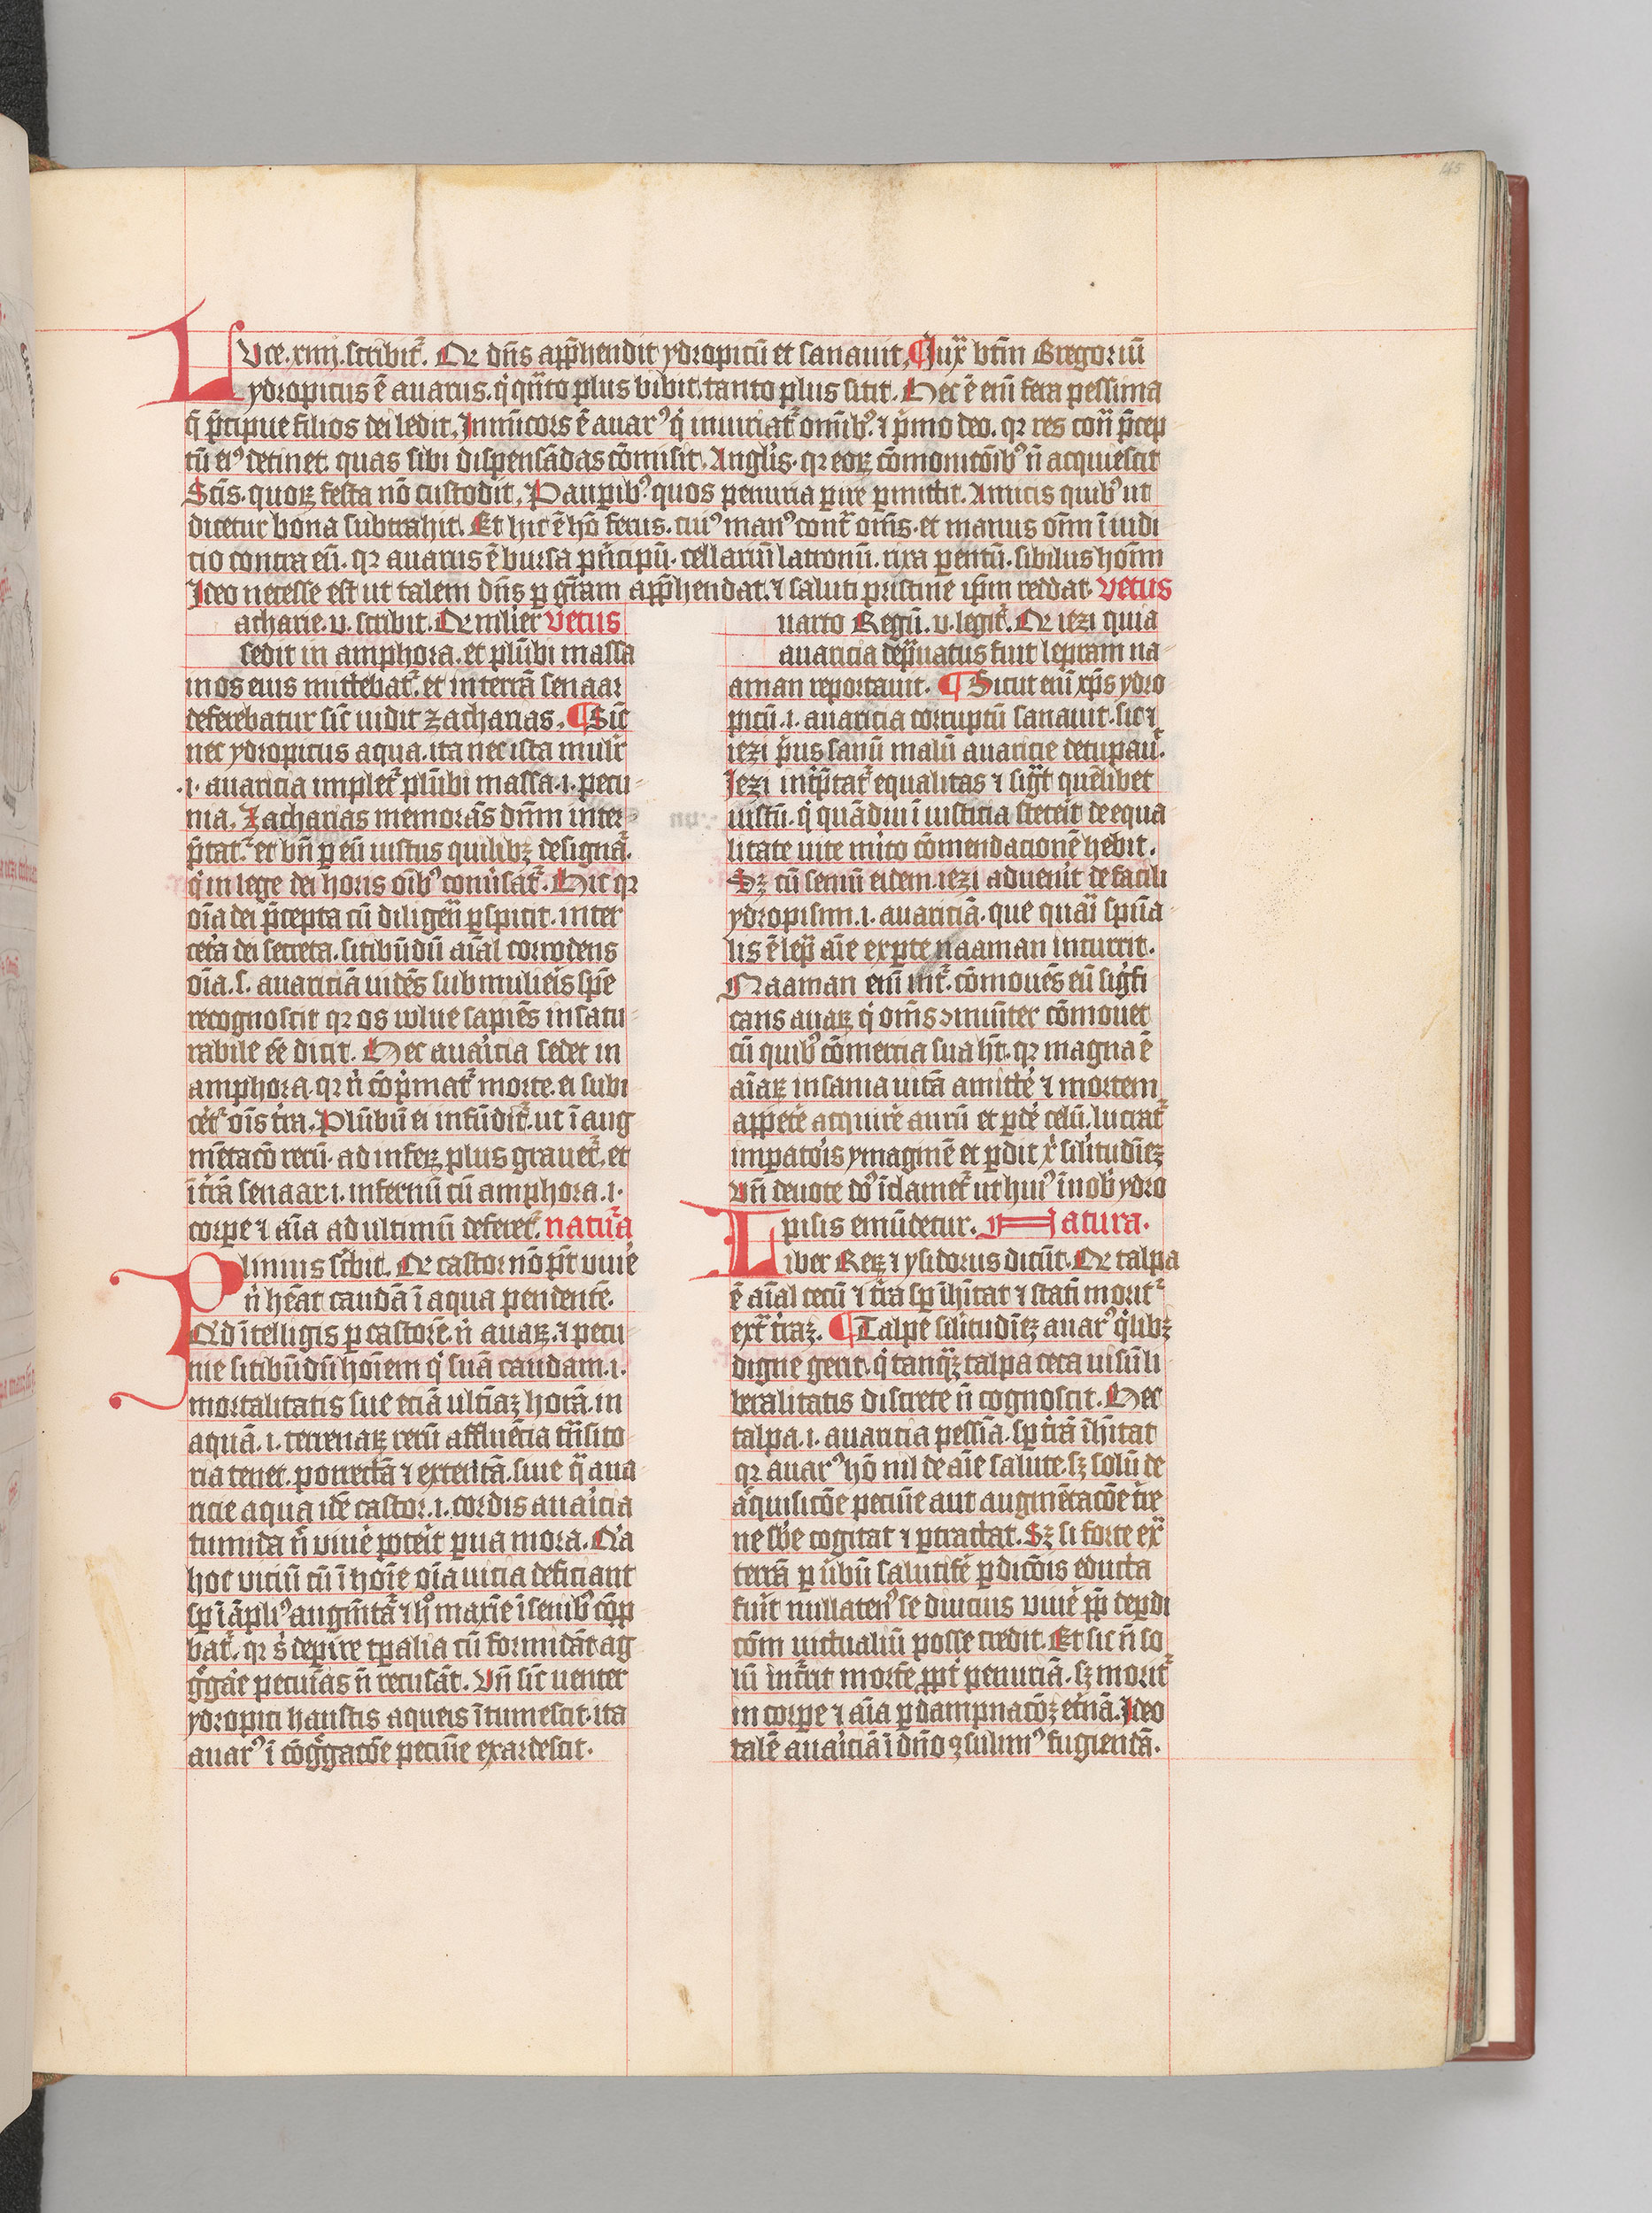 LUce. xiiij. scribit᷑. Qr dn̄s app̄hendit ydropicū et sanauit. ¶ Iux̄ btm̄ Gregoriū
ydropicus ē auarus. q̇ qn̄to plus bibit. tanto plus sitit. Hec ē em̄ fera pessima
q̄ p̄cipue filios dei ledit. Inmīcors ē auarꝰ q̇ iniuriat᷑ om̄ibꝰ. ⁊ ṗmo deo. qr res con᷑ p̄cep
tū eiꝰ detinet. quas sibi dispensādas cōmisit. Anglis. qr eoꝝ cōmonicōibꝰ n̄ acquiescit
Scīs. quoꝝ festa nō custodit. Pauꝑibꝰ. quos penuria ꝑire ꝑmittit. Amicis quibꝰ ut
dicetur bona subtrahit. Et hic ē hō ferus. cuiꝰ manꝰ cont᷑ om̄s. et manus om̄ ī iudi
cio contra eū. qr auarus ē bursa pn̄cipū. cellariū latronū. rixa parentū. sibilus hoīm
Ideo necesse est ut talem dn̄s ꝑ gr̄am app̄hendat. ⁊ saluti pristine ip̄m reddat. vetus
acharie. v. scribit. Qr mulier vetus
sedit in amphora. et plūbi massa
in os eius mittebat᷑. et in terrā senaar
deferebatur sic̄ uidit zacharias. ¶ Sic̄
nec ydropicus aqua. ita nec ista mulr̄
.i. auaricia implet᷑ plūbi massa .i. pecu-
nia. Zacharias memorās dn̄m inter
p̄tat᷑. et bn̄ ꝑ eū iustus quilibꝫ designat᷑.
q̇ in lege dei horis oībꝰ conūsat᷑. Hic qr
oīa dei p̄cepta cū diligen᷑ ꝑspicit. inter
cetᷓa dei secreta. sitibūdū aīal corrodens
oīa. s. auariciā uidēs sub mulieris spē
recognoscit qr os wlue sapiēs insatu-
rabile eē dicit. Hec auaricia sedet in
amphora. qr n̄ cōṗmat᷑ morte. ei subi
cet᷑ oīs tr̄a. Plūbū ei infūdit᷑. ut ī aug
mētacō rerū. ad inferꝝ plus grauet᷑. et
ī tr̄ā senaar .i. infernū cū amphora .i.
corpe ⁊ aīa ad ultimū deferet᷑. natura
Plinius sc̄bit. Qr castor nō pt̄ viue
n̄ hēat caudā ī aqua pendentē.
Qd ītelligis ꝑ castorē. n̄ auaꝝ. ⁊ pecu
nie sitibūdū hoīem q̇ suā caudam .i.
mortalitatis sue eciā ultīaꝫ horā. in
aquā .i. terrenaꝝ rerū affluēcia trāsito-
ria tenet. porrectā ⁊ extentā. siue q̄ aua-
ricie aqua idē castor .i. cordis auaricia
tumida n̄ viue poterit parua mora. Qa
hoc viciū cū ī hoīe oīa uicia deficiant
sp̄ ī āpliꝰ augmt̄at᷑ ⁊ hͦ maxīe ī senibꝰ cōp
bat᷑. qr s̄ deꝑire tꝑalia cū formidāt ag
g̊gare pecūias n̄ recusāt. Vn̄ sic̄ uenter
ydropici haustis aqueis ītumescit. ita
auarꝰ ī cōg̊gacōe pecunie exardescit.
uarto Regū. v. legit᷑. Qr iezi quia
auaricia dep̄uatus fuit lepram na-
aman reportauit. ¶ Sicut em̄ xp̄s ydro
picū .i. auaricia corruptū sanauit. sic ⁊
iezi ṗus sanū malū auaricie detupau᷑.
Iezi int̄p̄tat᷑ equalitas ⁊ sigt̄ quēlibet
iustū. q̇ quādiu ī iusticia steterit de equa
litate uite mito cōmendacionē hēbit.
Sꝫ cū seniū eidem iezi aduenīt de facili
ydropisim .i. auariciā. que quai sp̄ūa-
lis ē lep᷑ aīe ex ꝑte naaman incurrit.
Naaman em̄ int᷑. cōmouēs eū sigfi
cans auaꝝ q̇ om̄s ꝯmūiter cōmouet
cū quibꝰ cōmercia sua ht̄. qr magna ē
aīaꝝ insania uitā amitte ⁊ mortem
appete acquire aurū et ꝑde celū. lucrat᷑
imperatois ymaginē et ꝑdit xp̄i silitudīeꝫ
Vn̄ deuote dō īclamet᷑ ut huiꝰ ī nob ydro
pisis emūdetur. Natura.
Liber Reꝝ ⁊ ysidorus dicūt. Qr talpa
ē aīal cecū ⁊ tr̄a sp̄ īhītat ⁊ statī morit᷑
ext᷑ tr̄aꝫ. ¶ Talpe silitudīeꝫ auarꝰ q̇libꝫ
digne gerit. q̇ tanq̄ꝫ talpa ceca uisū li
beralitatis discrete n̄ cognoscit. Hec
talpa .i. auaricia pessīa. sp̄ tr̄ā īhītat
qr auarꝰ hō nil de aīe salute. sꝫ solū de
aquisicōe pecunie aut augmētacōe tr̄re
ne sbe cogitat ⁊ ꝑtractat. Sꝫ si forte ex᷑
terrā ꝑ ūbū salutife ꝑdicōis educta
fuit nullatenꝰ se diucius viue pp̄ deꝑdi
cōm uictualiū posse credit. Et sic n̄ so
lū incūrit mortē ppt̄ penuriā. sꝫ morit᷑
in corpe ⁊ aīa ꝑ dampnacōꝫ etnā. Ideo
talē auariciā ī dn̄o ꝯsulimꝰ fugiendā.